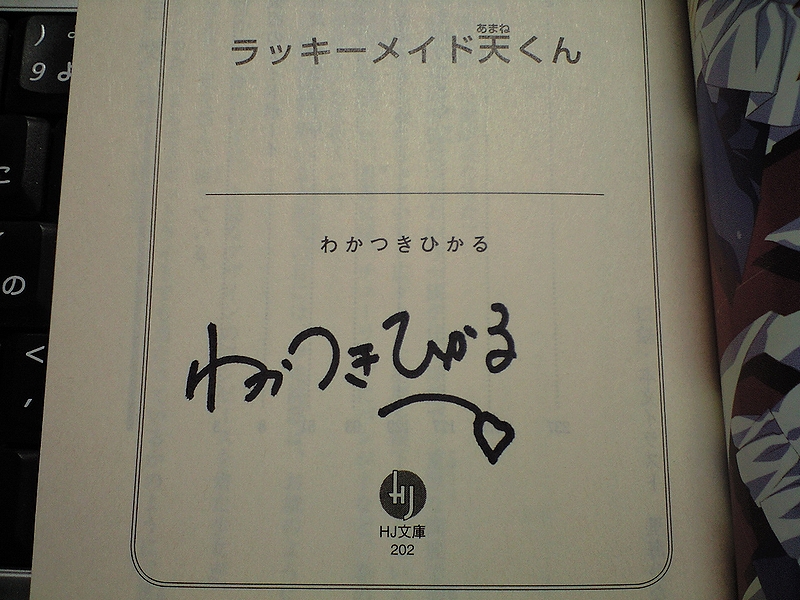 あまね
ラッキーメイド天くん
わかつきひかる
わかつきひかる
HJ
HJ文庫
202
)
9 よ
こ
の
<
,